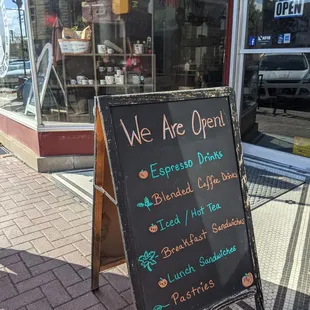 OPEN
We Are Open!
Espresso Drinks
Blended Coffee Drinks
Iced / Hot Tea
Breakfast Sandwiches
Lunch Sandwiches
Pastries